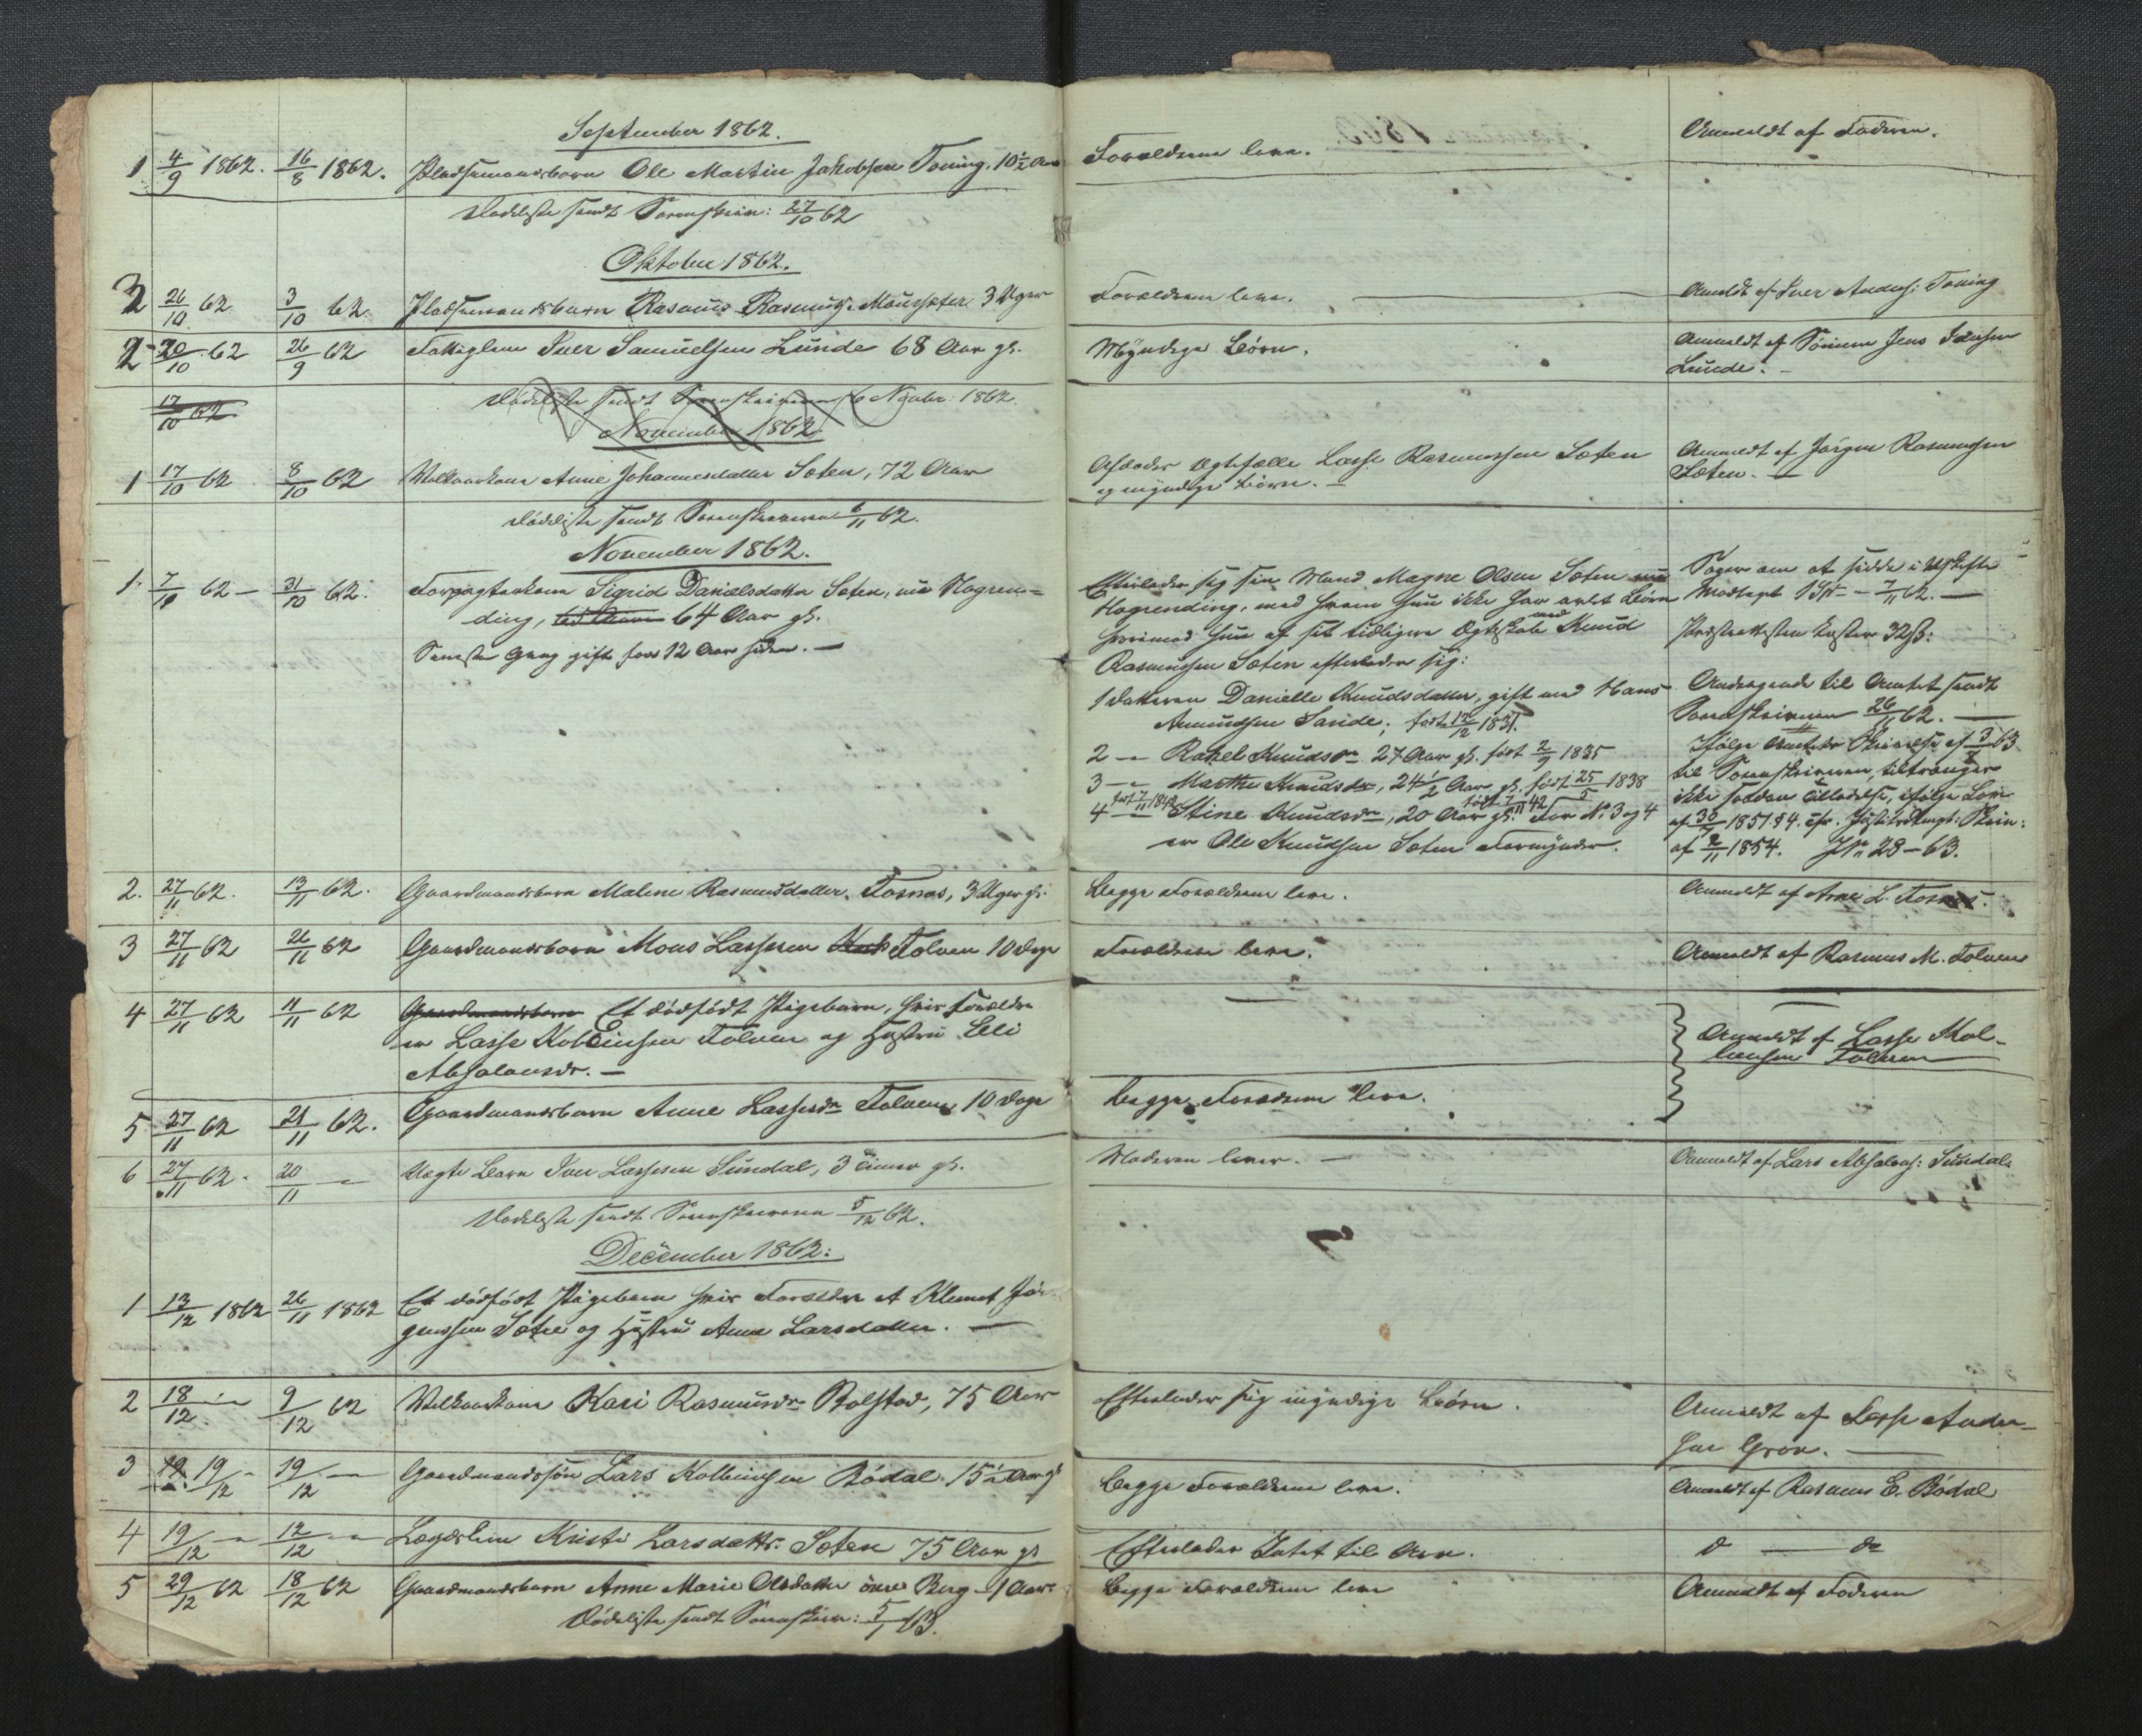 September 1862.
1 4/9 1862. 16/8 1862. Pladsmandsbarn Ole Martin Jakobsen Toning. 10½ Aar
Forældrene leve.
Anmeldt af Faderen.
Dødsliste sendt Sorenskriv: 27/10 62
Oktober 1862.
3 26/10 62 3/10 62. Pladsmandsbarn Rasmus Rasmuss. Mousæter 3 Uger
Forældrene leve.
Anmeldt af Iver Anders: Toning
2 20/10 62 26/9 62 Fattiglem Iver Samuelsen Lunde 68 Aar gl.
Myndige Børn.
Anmeldt af Sønnen Jens
Lunde.
17/10 62
Dødsliste sendt Sorenskriveren 6 Novbr: 1862.
November 1862.
1 17/10 62 8/10 62 Kaarkone Anne Johannesdatter Sæten, 72 Aar
Ægtefælle Lasse Rasmussen Sæten
og myndige Børn. —
Anmeldt af Jørgen Rasmussen
Sæten. —
Dødsliste sendt Sorenskriveren 6/11 62.
November 1862.
1. 7/11 62 — 31/10 62. Forpagterkone Sigrid Danielsdatter Sæten, nu Hogren=
ding, 64 Aar gl.
Seneste Gang gift for 12 Aar siden. —
Efterlader sig sin Mand Magne Olsen Sæten nu
Hogrending, med hvem hun ikke har avlet Børn
hvorimod hun af sit tidligere Ægteskab med Knud
Rasmussen Sæten efterlader sig:
1 Datteren Danielle Knudsdatter, gift med Hans
Amundsen Sande; født 12/12 1831.
2 — Rakel Knudsdr 27 Aar gl. født 2/9 1835
3 — Marthe Knudsdr, 24½ Aar gl. født 25/5 1838
4 — født 7/11 1842 Stine Knudsdr, 20 Aar gl. født 7/11 42 For No 3 og 4
er Ole Knudsen Sæten Formynder.
Søger om at sidde i Uskifte
Modtaget 1 Spd — 7/11 62. —
Præsteattesten koster 32 ß:
Andragende til Amtet sendt
Sorenskriveren 26/11 62. —
Ifølge Amtets Skrivelse af 63
til Sorenskriveren, tiltrænges
ikke saadan Tilladelse, ifølge Lov
af 30/7 1851 § 4. cfr. Skriv:
af 2/11 1854. JNr 28 — 63.
2. 27/11 62. 13/11 62. Gaardmandsbarn Malene Rasmusdatter Fosnæs, 3 Uger gl.
Begge Forældrene leve.
Anmeldt af Arne L. Fosnæs.
3 27/11 62 26/11 62 Gaardmandsbarn Mons Lassesen Folven 10 Dage
Forældrene leve.
Anmeldt af Rasmus M. Folven
4 27/11 62 11/11 62 Gaardmandsbarn Et dødfødt Pigebarn, hvis Forældre
er Lasse Kolbeinsen Folven og Hustru Eli
Absalonsdr. —
Anmeldt af Lasse Kol-
beinsen Folven
5 27/11 62 21/11 62. Gaardmandsbarn Anne Lassesdr Folven 10 Dage
Begge Forældrene leve.
6 27/11 62. 20/11 — Uægte Barn Iver Lassesen Sundal, 3 Timer gl.
Moderen lever. —
Anmeldt af Lars Absalons: Sundal
Dødsliste sendt Sorenskriveren 5/12 62.
December 1862:
1 13/12 1862 26/11 1862 Et dødfødt Pigebarn hvis Forældre er Klemet Jør-
gensen Sætre og Hustru Anne Larsdatter. —
2 18/12 — 9/12 62 Kaarkone Kari Rasmusdr Bolstad, 75 Aar
Efterlader sig myndige Børn.
Anmeldt af Lasse Ander-
sen Grov. —
3 19/12 — 19/12 — Gaardmandssøn Lars Kolbeinsen Bødal 15½ Aar gl
Begge Forældrene leve.
Anmeldt af Rasmus E. Bødal
4 19/12 — 12/12 — Lægdslem Kristi Larsdattr. Sæten 75 Aar gl
Efterlader Intet til Arv.
do — do
5 29/12 62 18/12 62 Gaardmandsbarn Anne Marie Olsdatter øvre Berg 1 Aar
Begge Forældrene leve
Anmeldt af Faderen
Dødsliste sendt Sorenskriv: 5/1 63.